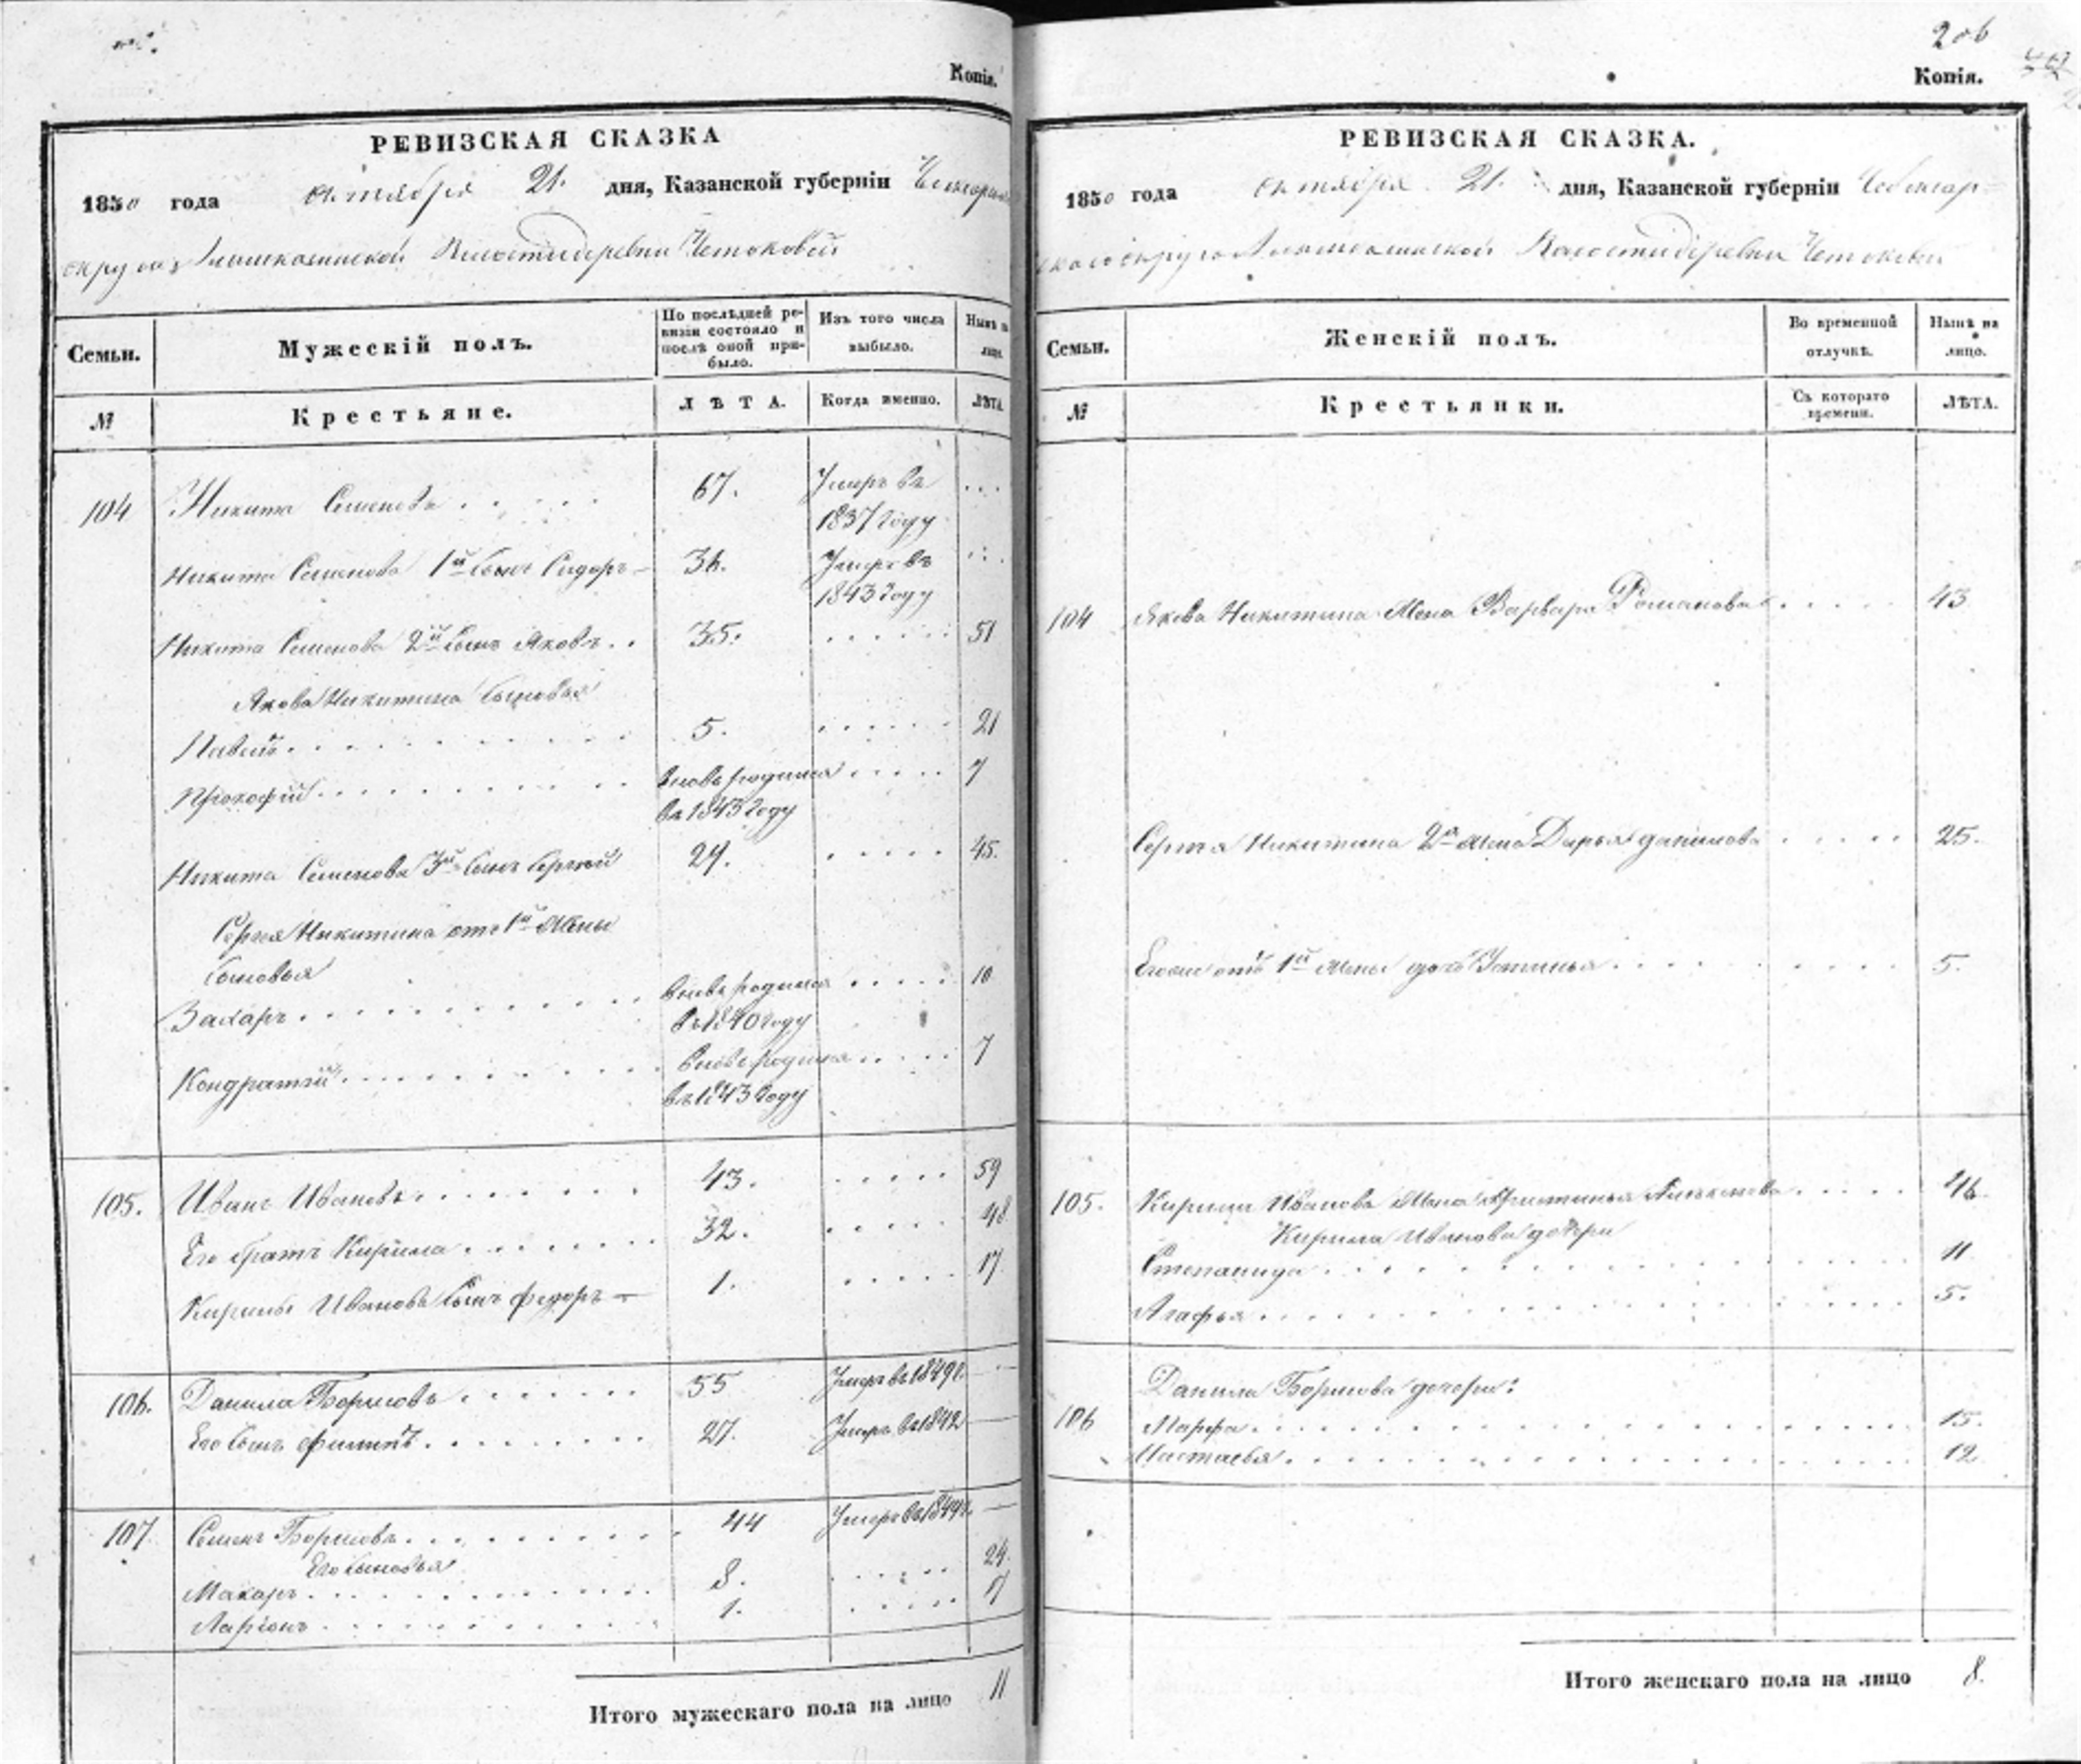 Копія.
РЕВИЗСКАЯ СКАЗКА
1850 года октября 21. дня, Казанской губерніи
округа Волости деревни
Семьи.
Мужескій полъ.
По послѣдней ре-
визіи состояло и
послѣ оной при-
было.
Изъ того числа
выбыло.
Нынѣ на
лицо.
№
Крестьяне.
ЛѢТА.
Когда именно.
ЛѢТА.
104 Никита Семеновъ 67. Умеръ въ
1837 году
Никита Семенова 1й сынъ Сидоръ 36. Умеръ въ
1843 году
Никита Семенова 2й сынъ Яковъ 35. 51
Якова Никитина сыновья
Павелъ 5. 21
Прокофій вновь родился 7
въ 1843 году
Никита Семенова 3й сынъ Сергѣй 29. 45.
Сергея Никитина отъ 1й жены
сыновья
Захаръ вновь родился 10
въ 1840 году
Кондратій вновь родился 7
въ 1843 году
105. Иванъ Ивановъ 43. 59
Его братъ Кирила 32. 48
Кирилы Иванова сынъ Федоръ 1. 17
106. Данила Борисовъ 55 Умеръ въ 1849 г.
Его сынъ Филипъ 27. Умеръ въ 1842
107 Семенъ Борисовъ 44 Умеръ въ
Его сыновья
Макаръ 8. 24.
Ларіонъ 1. 17
Итого мужескаго пола на лицо 11
206
Копія.
РЕВИЗСКАЯ СКАЗКА.
1850 года октября 21. дня, Казанской губерніи Чебоксар-
скаго округа Волости деревни
Семьи.
Женскій полъ.
Во временной
отлучкѣ.
Нынѣ на
лицо.
№
Крестьянки.
Съ котораго
времени.
ЛѢТА.
104 Якова Никитина жена Варвара Романова 43
Сергея Никитина 2я жена Дарья Данилова 25.
Егоже отъ 1й жены дочь Устинья 5.
105. Кирила Иванова жена 46.
Кирила Иванова дочери
Степанида 11
Агафья 5.
Данила Борисова дочери:
106 Марфа 15.
Настасья 12
Итого женскаго пола на лицо 8.